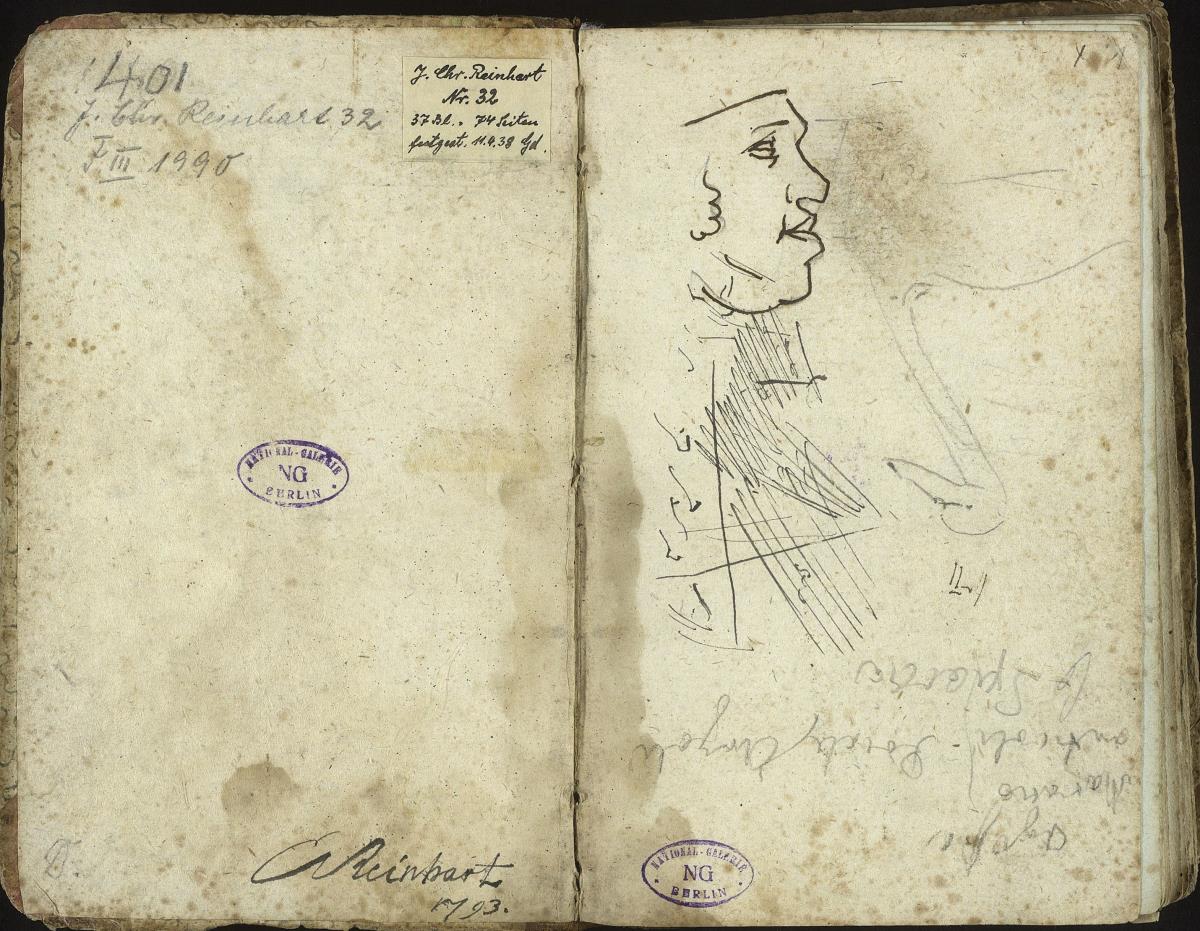 1401
J. Chr. Reinhart 32
F III 1990
J. Chr. Reinhart
Nr. 32
37 Bl. = 74 Seiten
festgest. 11.4.38 Gd.
NATIONAL-GALERIE
NG
BERLIN
CReinhart
1793.
NATIONAL-GALERIE
NG
BERLIN
Marano
anticoli